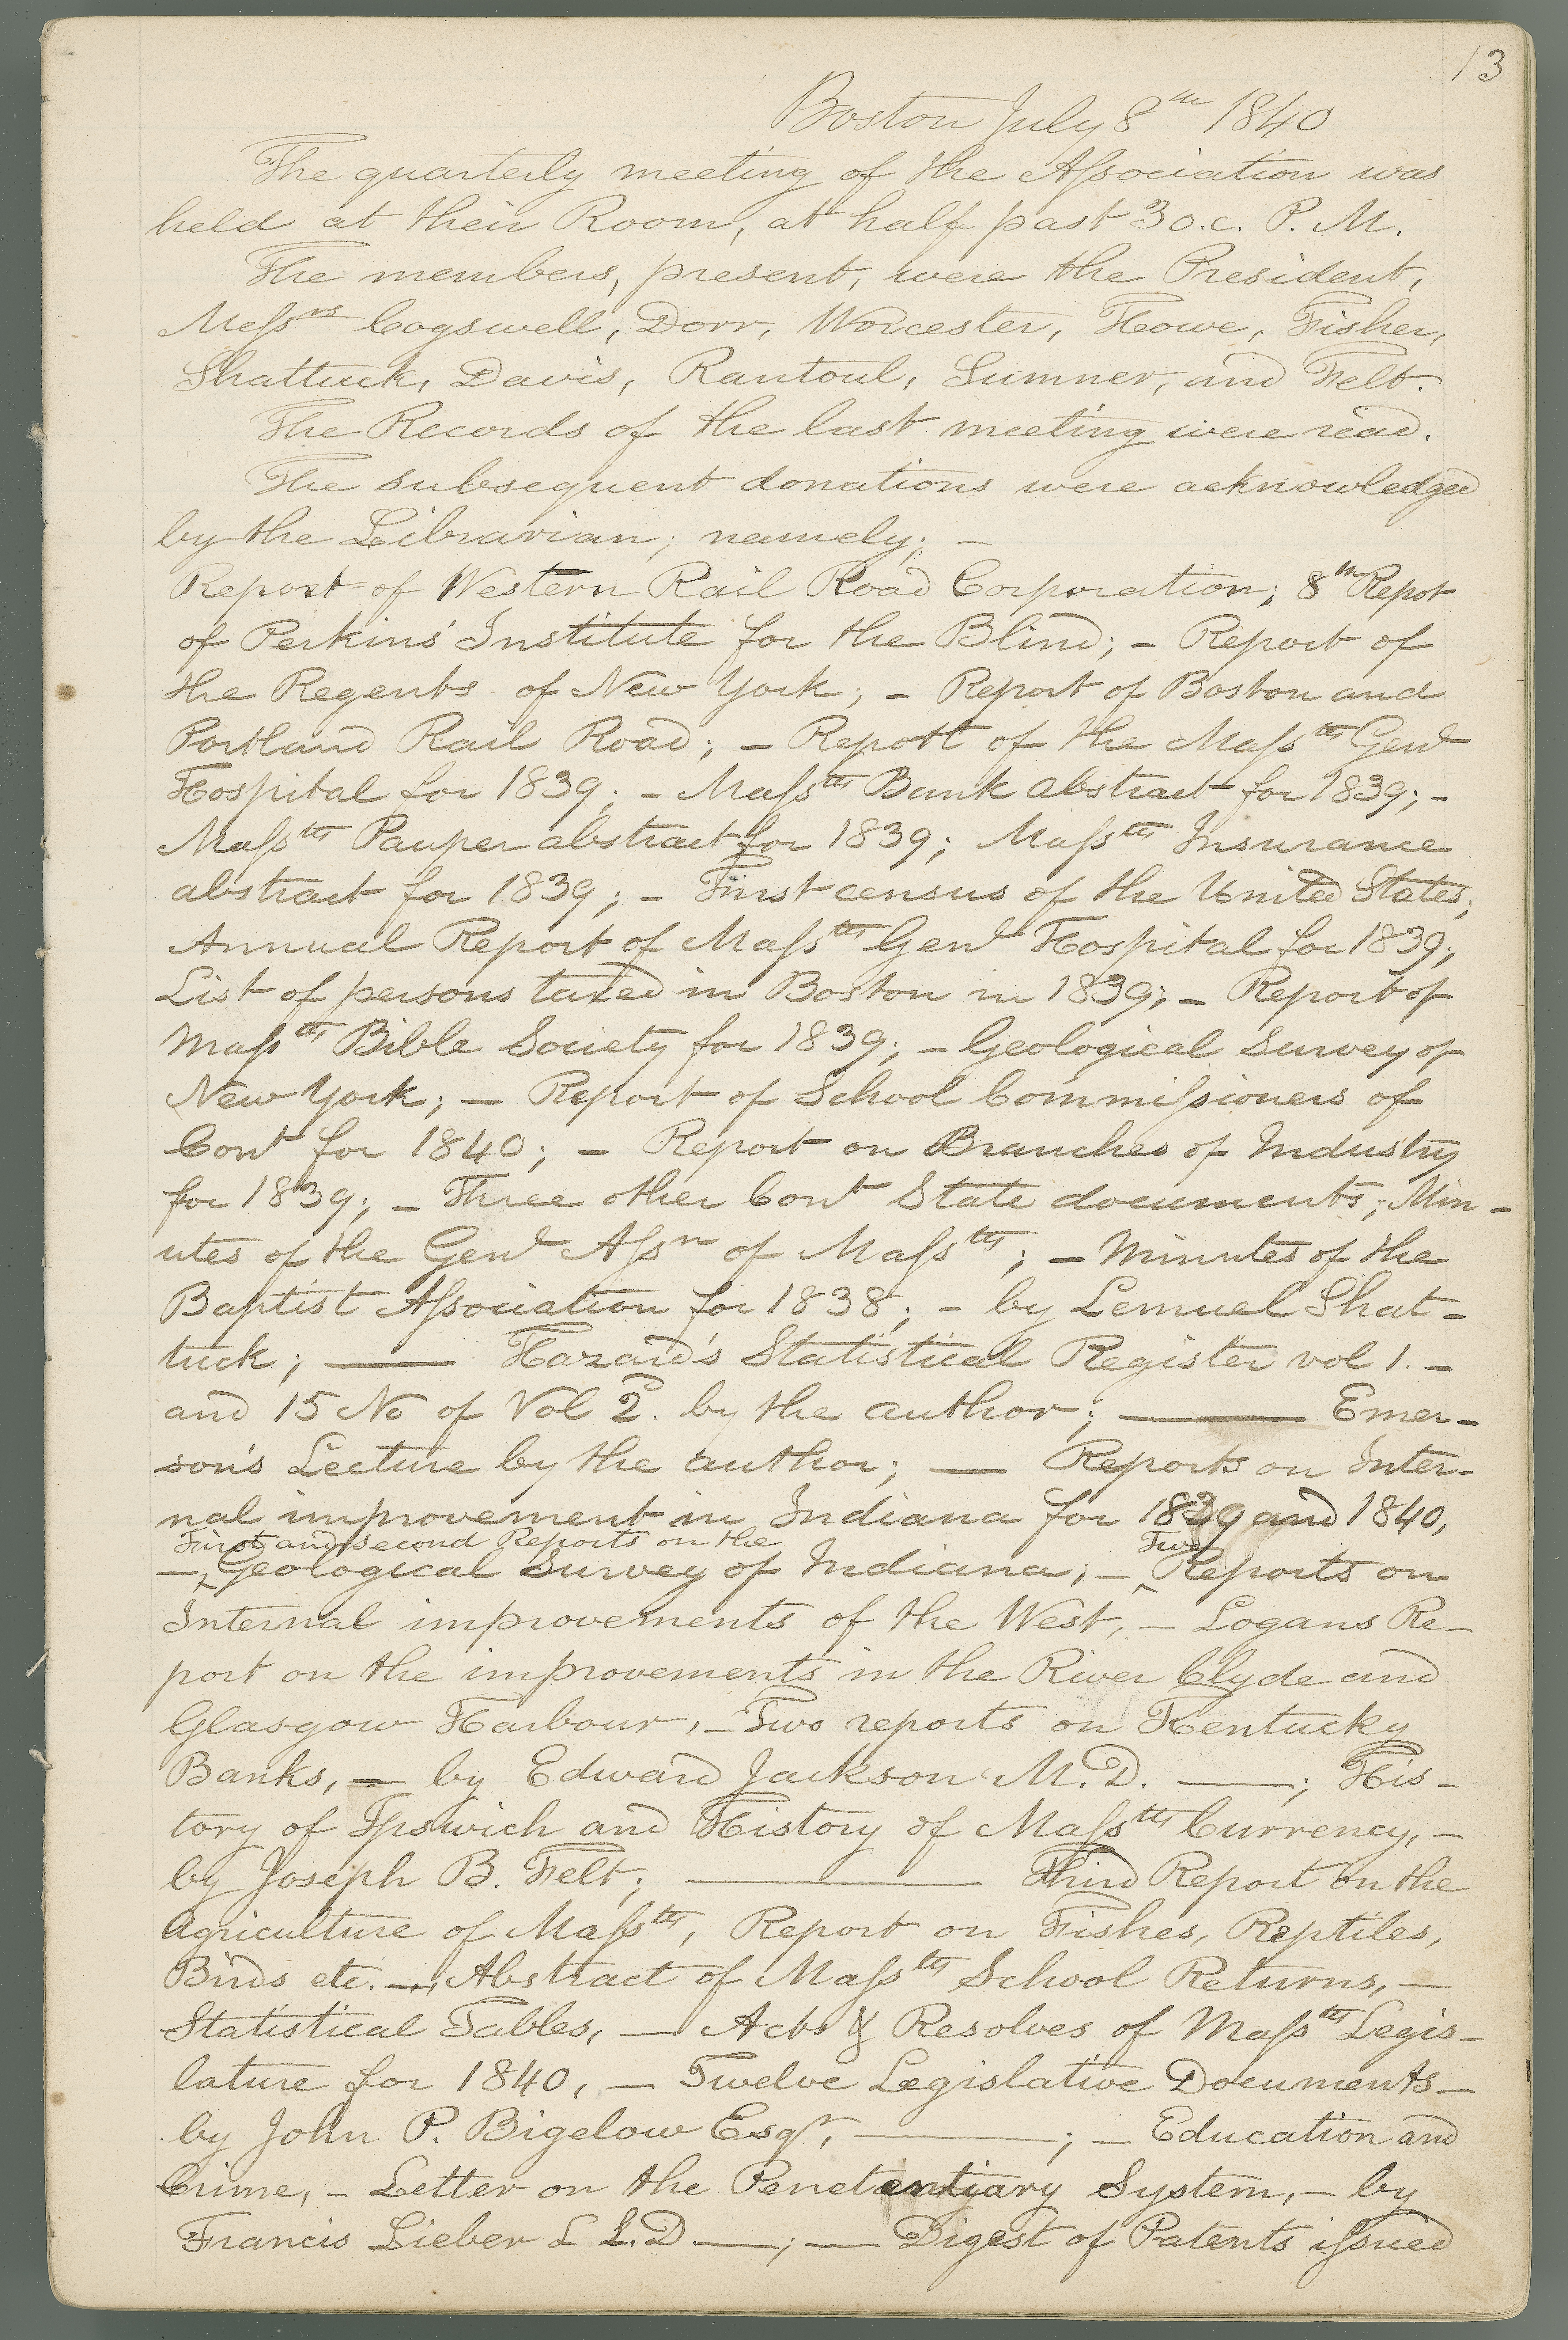 13
Boston July 8th 1840
The quarterly meeting of the Aſsociation was
held at their Room, at half past 3 o.c. P. M.
The members, present, were the President,
Meſsrs Cogswell, Dorr, Worcester, Howe, Fisher,
Shattuck, Davis, Rantoul, Sumner, and Felt.
The Records of the last meeting were read.
The subsequent donations were acknowledged
by the Librarian; namely; —
Report of Western Rail Road Corporation; 8th Repot
of Perkins' Institute for the Blind; – Report of
the Regents of New York; – Report of Boston and
Portland Rail Road; – Report of the Maſsths Genl
Hospital for 1839; – Maſsths Bank abstract for 1839; –
Maſsths Pauper abstract for 1839; Maſsths Insurance
abstract for 1839; – First census of the United States;
Annual Report of Maſsths Genl Hospital for 1839;
List of persons taxed in Boston in 1839; – Report of
Maſsths Bible Society for 1839; – Geological Survey of
New York; – Report of School Commiſsioners of
Cont for 1840; – Report on Branches of Industry
for 1839; – Three other Cont State documents; Min-
utes of the Genl Aſsn of Maſsths; – Minutes of the
Baptist Aſsociation for 1838; – by Lemuel Shat-
tuck; — Hazard's Statistical Register vol 1. –
and 15 No of Vol 2. by the author; — Emer-
son's Lecture by the author; — Reports on Inter-
nal improvement in Indiana for 1839 and 1840,
First and second Reports on the Two
– ‸Geological Survey of Indiana; – ‸Reports on
Internal improvements of the West, – Logans Re-
port on the improvements in the River Clyde and
Glasgow Harbour, – Two reports on Kentucky
Banks, — by Edward Jackson M.D. —; His-
tory of Ipswich and History of Maſsths Currency, –
by Joseph B. Felt; — Third Report on the
Agriculture of Maſsths, Report on Fishes, Reptiles,
Birds etc. —, Abstract of Maſsths School Returns, —
Statistical Tables, — Acts & Resolves of Maſsths Legis-
lature for 1840, — Twelve Legislative Documents —
by John P. Bigelow Esqr, —; – Education and
Crime, – Letter on the Penetentiary System, – by
Francis Lieber L L.D —; — Digest of Patents iſsued